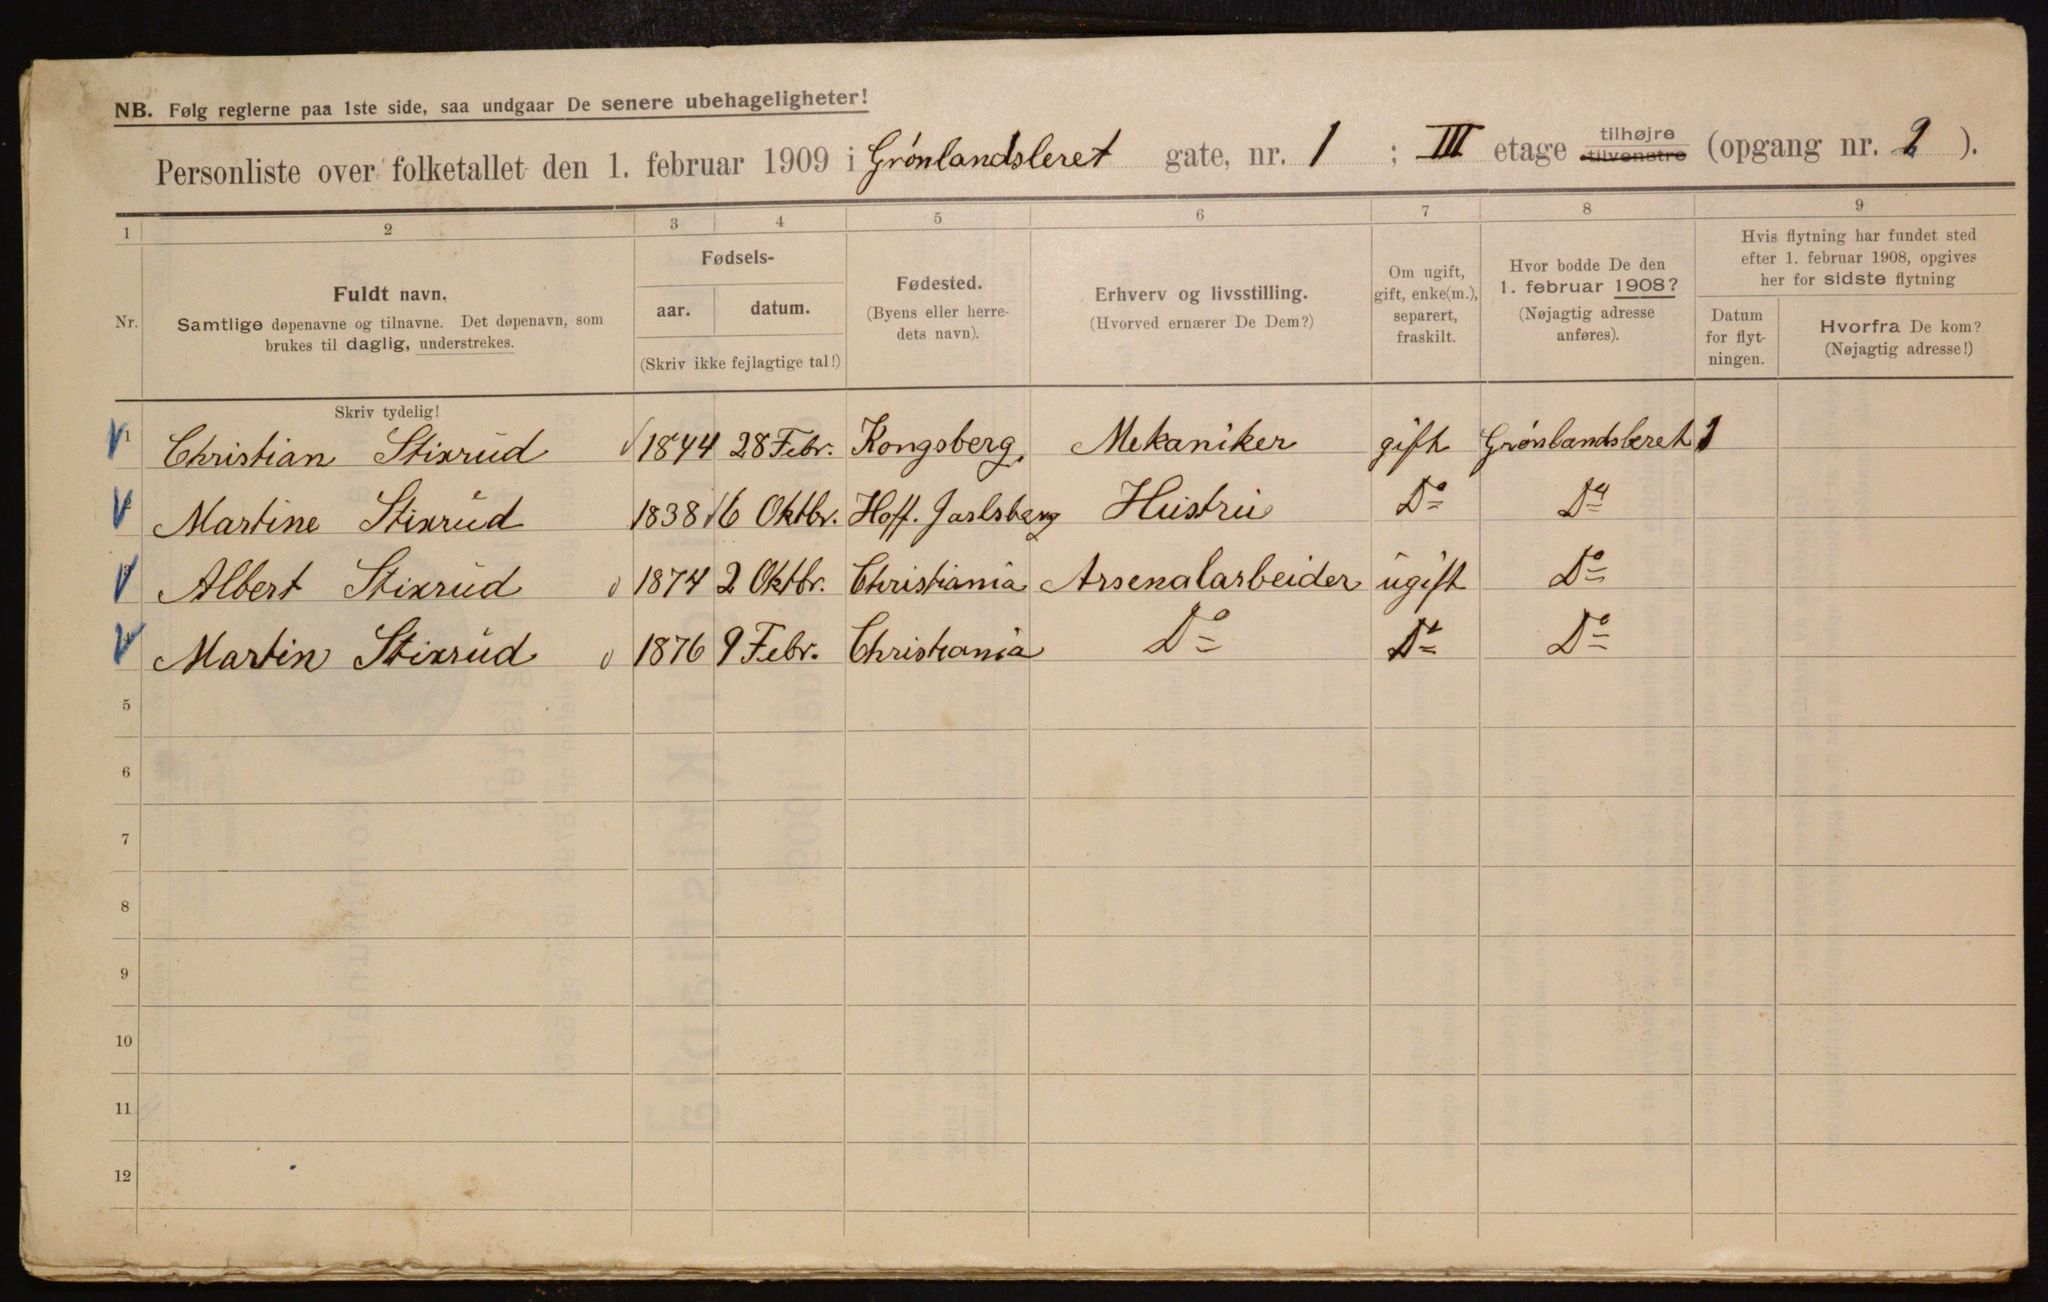 NB. Følg reglerne paa 1ste side, saa undgaar De senere ubehageligheter!
Personliste over folketallet den 1. februar 1909 i Grønlandsleret gate, nr. 1 ; III etage tilhøjre tilvenstre (opgang nr. 2 ).
1 2 3 4 5 6 7 8 9
Nr.
Fuldt navn.
Samtlige døpenavne og tilnavne. Det døpenavn, som
brukes til daglig, understrekes.
Skriv tydelig!
Fødsels-
aar. datum.
(Skriv ikke fejlagtige tal!)
Fødested.
(Byens eller herre-
dets navn).
Erhverv og livsstilling.
(Hvorved ernærer De Dem?)
Om ugift,
gift, enke(m.),
separert,
fraskilt.
Hvor bodde De den
1. februar 1908?
(Nøjagtig adresse
anføres).
Hvis flytning har fundet sted
efter 1. februar 1908, opgives
her for sidste flytning
Datum
for flyt-
ningen.
Hvorfra De kom?
(Nøjagtig adresse!)
1 Christian Stixrud 1844 28 Febr. Kongsberg. Mekaniker gift Grønlandsleret 1
Martine Stixrud 1838 16 Oktbr. Hoff. Jarlsberg Hustru Do Do
Albert Stixrud 1874 2 Oktbr. Christiania Arsenalarbeider ugift Do
Martin Stixrud 1876 9 Febr. Christiania Do Do Do
5
6
7
8
9
10
11
12